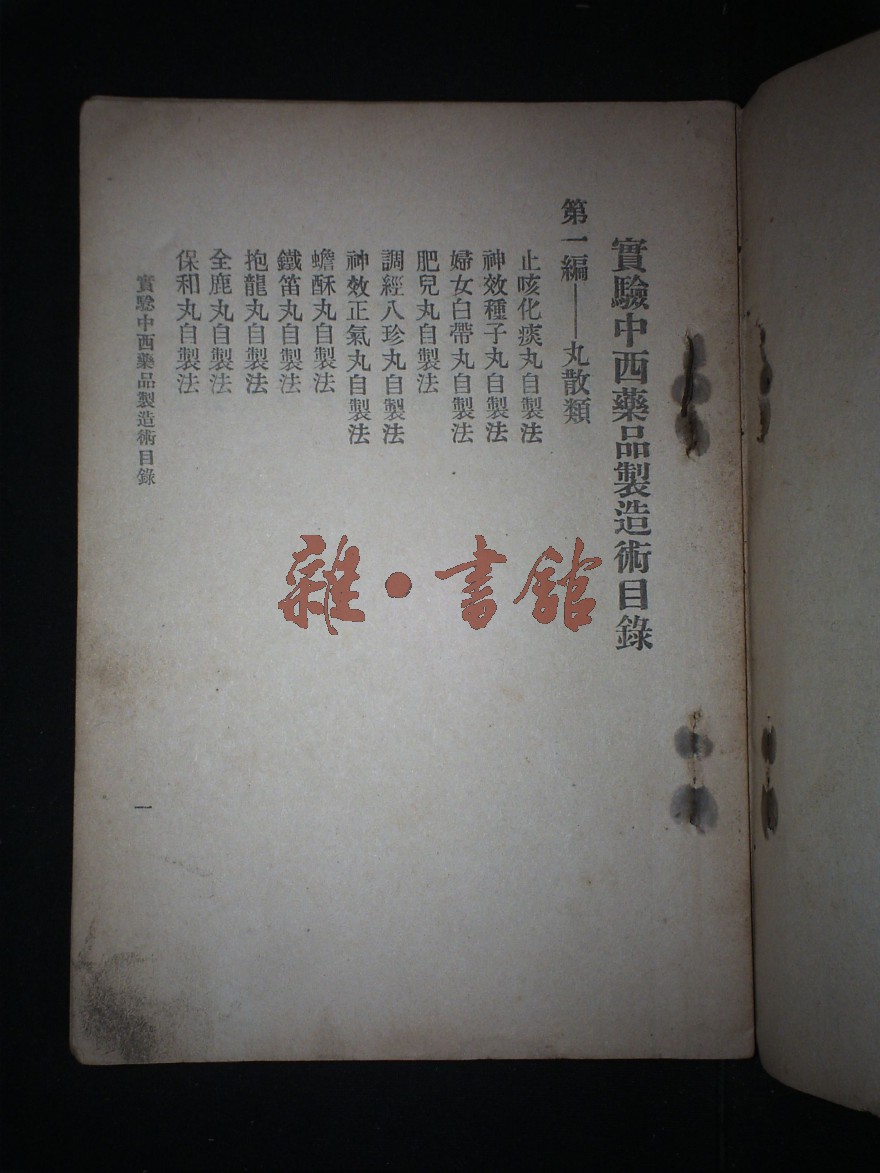 實驗中西藥品製造術目錄
第一編——丸散類
止咳化痰丸自製法
神效種子丸自製法
婦女白帶丸自製法
肥兒丸自製法
調經八珍丸自製法
神效正氣丸自製法
蟾酥丸自製法
鐵笛丸自製法
抱龍丸自製法
全鹿丸自製法
保和丸自製法
實驗中西藥品製造術目錄
一
雜·書館